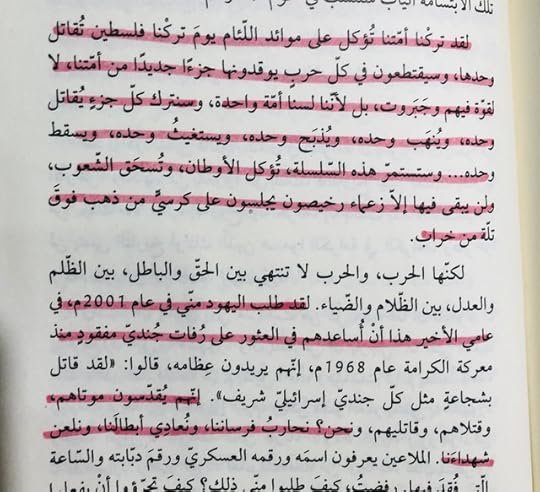 تلك الابتسامة
لقد تركْنا أمّتنا تُؤكل على موائد اللّئام يومَ تركْنا فلسطين تُقاتل
وحدها، وسيقتطعون في كلّ حربٍ يوقدونها جزءًا جديدًا من أمّتنا، لا
لقوّة فيهم وجَبَروت، بل لأنّنا لسنا أمّة واحدة، وسنترك كلّ جزءٍ يُقاتل
وحده، ويُنهَب وحده، ويُذبَح وحده، ويستغيثُ وحده، ويسقط
وحده... وستستمرّ هذه السّلسلة، تُؤكل الأوطان، وتُسحَق الشّعوب،
ولن يبقى فيها إلاّ زعماء رخيصون يجلسون على كرسيٍّ من ذهب فوقَ
تلّة من خراب.
لكنّها الحرب، والحرب لا تنتهي بين الحقّ والباطل، بين الظّلم
والعدل، بين الظّلام والضّياء. لقد طلب اليهود منّي في عام 2001م، في
عامي الأخير هذا أنْ أساعدهم في العثور على رُفات جنديّ مفقودٍ منذ
معركة الكرامة عام 1968م، إنّهم يريدون عِظامه، قالوا: «لقد قاتل
بشجاعةٍ مثل كلّ جنديّ إسرائيليّ شريف». إنّهم يُقدّسون موتاهم،
وقتلاهم، وقاتليهم، ونحن؟ نحاربُ فرساننا، ونُعادِي أبطالَنا، ونلعن
شهداءَنا. الملاعين يعرفون اسمَه ورقمه العسكريّ ورقمَ دبّابته والسّاعة
الّتي فُقِدَ فيها. رفضتُ، كيف طلبوا منّي ذلك؟ كيف تجرّؤوا أنْ يفعلوا